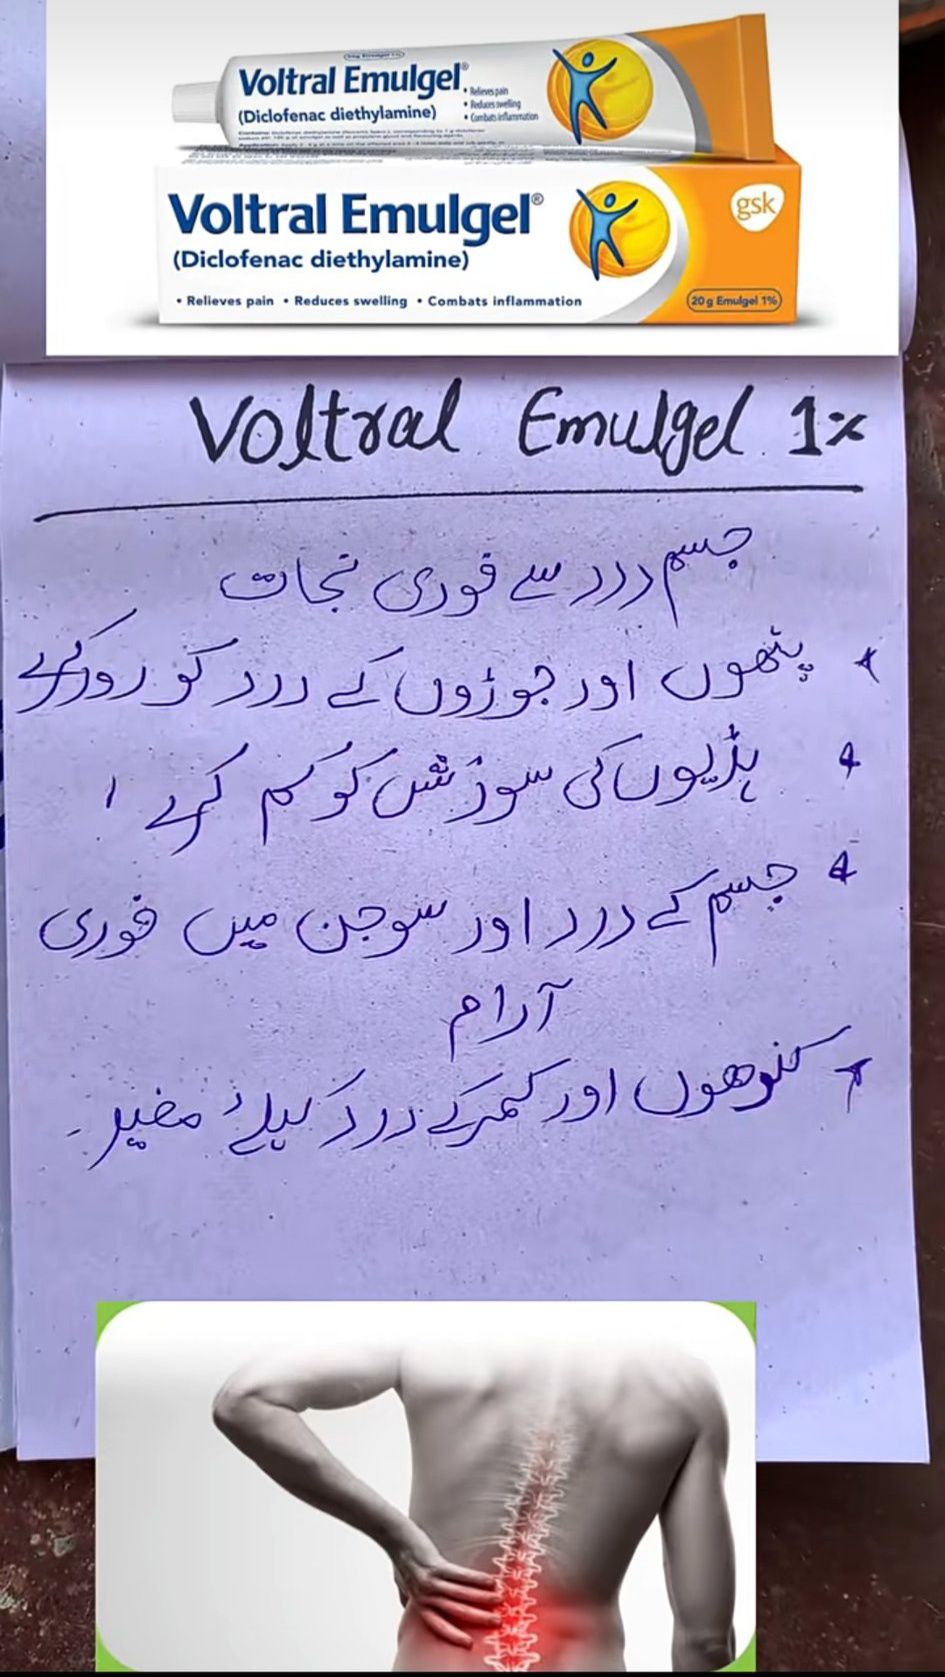 Voltral Emulgel®
(Diclofenac diethylamine)
• Relieves pain
• Reduces swelling
• Combats inflammation
Voltral Emulgel®
(Diclofenac diethylamine)
gsk
• Relieves pain • Reduces swelling • Combats inflammation
20 g Emulgel 1%
Voltral Emulgel 1%
جسم درد سے فوری نجات
پٹھوں اور جوڑوں کے درد کو دور کرے
ہڈیوں کی سوزش کو کم کرے
جسم کے درد اور سوجن میں فوری
آرام
کندھوں اور کمر کے درد کیلئے مفید۔